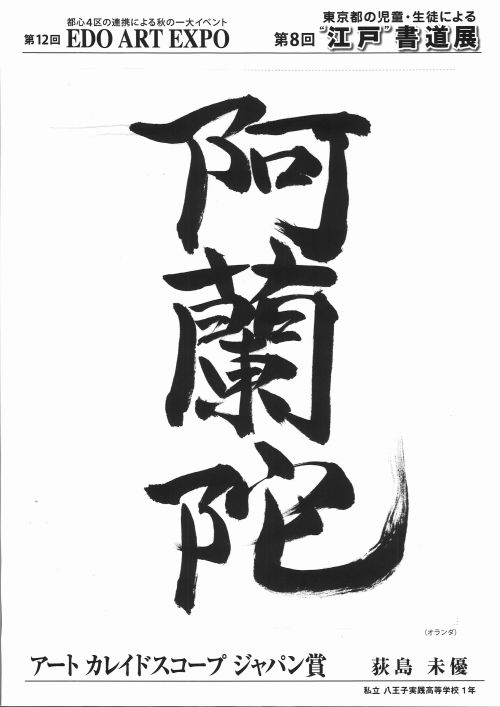 都心4区の連携による秋の一大イベント
第12回 EDO ART EXPO
東京都の児童・生徒による
第8回 "江戸"書道展
阿蘭陀
(オランダ)
アート カレイドスコープ ジャパン賞 荻島 未優
私立 八王子実践高等学校 1年